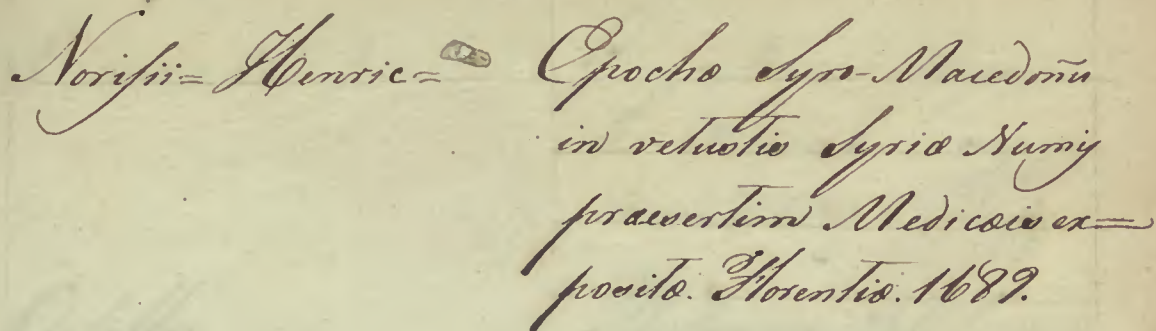 Norisii= Henric= Epochæ Syro-Macedonũ
in vetustis Syriæ Numis
praesertim Medicæis ex=
positæ. Florentiæ. 1689.